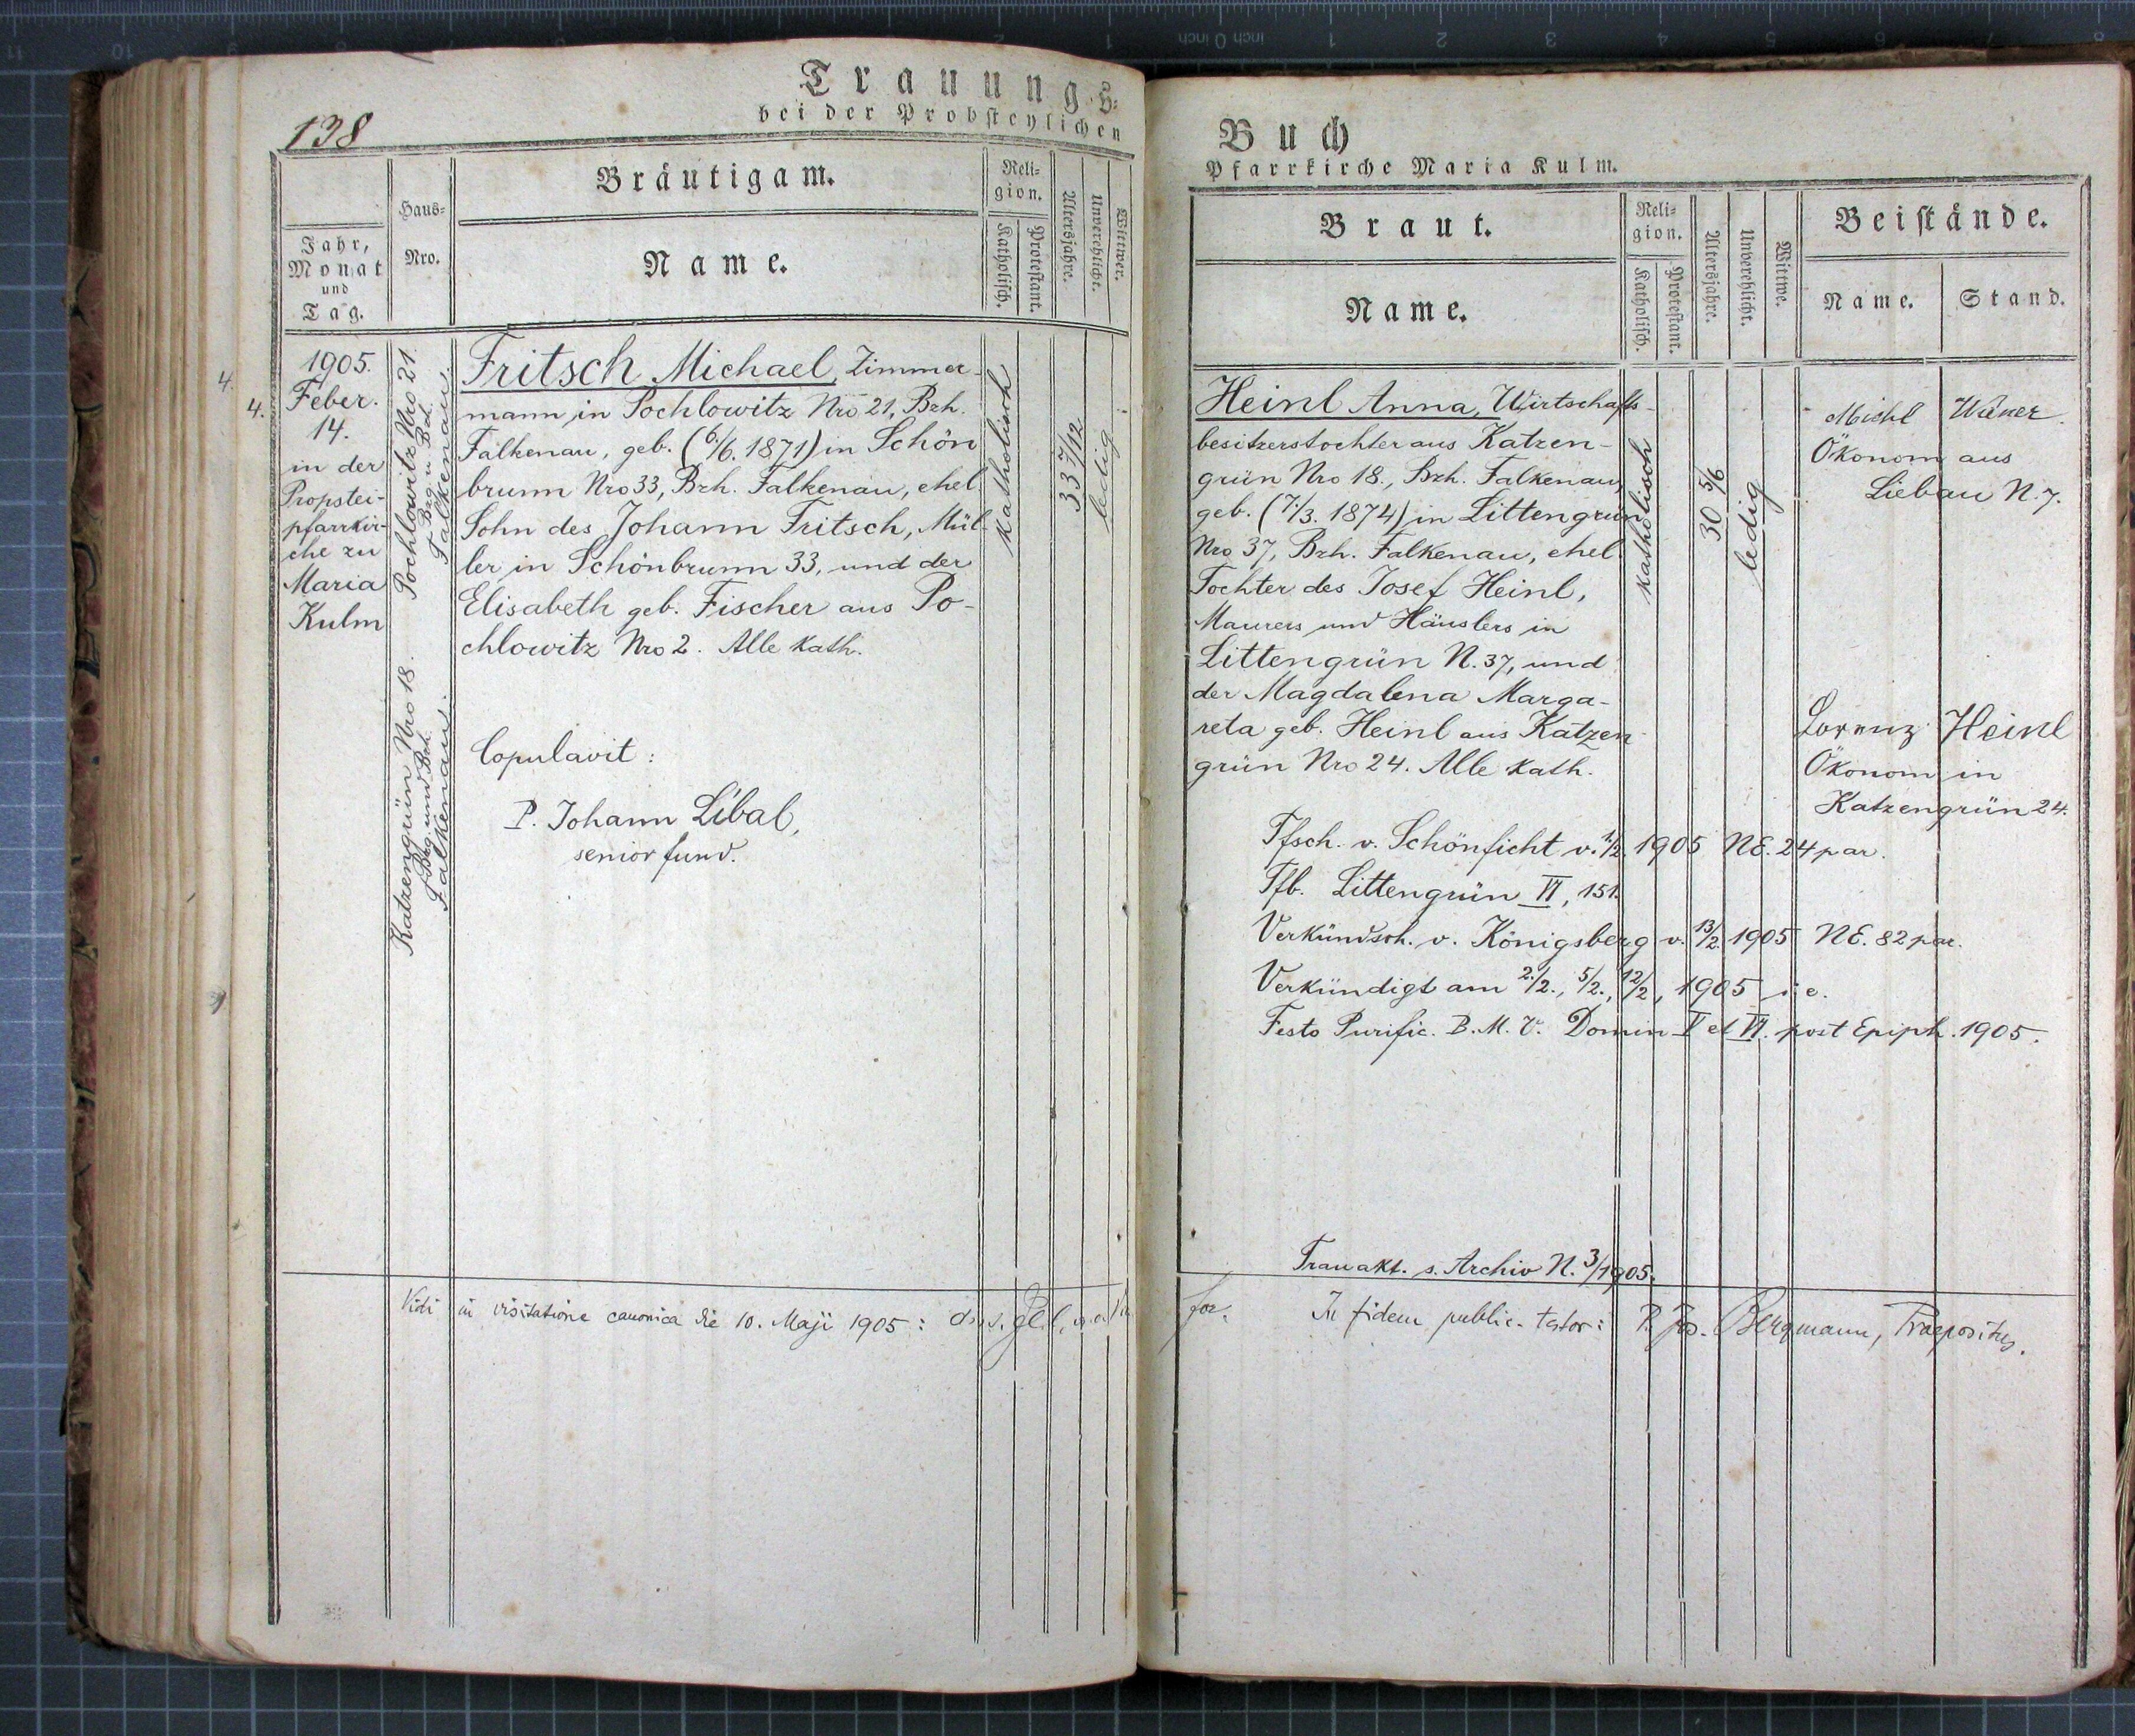 138
Trauungs-
bei der Probsteylichen
Jahr,
Monat
und
Tag.
Haus-
Nro.
Bräutigam.
Name.
Reli-
gion.
Katholisch.
Protestant.
Altersjahre.
Unverehlicht.
Wittwer.
4.
4.
1905.
Feber.
14.
in der
Propstei-
pfarrkir-
che zu
Maria
Kulm
Pochlowitz Nro 21.
Bzg. u. Bzh.
Falkenau.
Katzengrün Nro 18.
Bzg. und Bzh.
Falkenau.
Fritsch Michael, Zimmer-
mann in Pochlowitz Nro 21, Bzh.
Falkenau, geb. (6./6. 1871) in Schön
brunn Nro 33, Bzh. Falkenau, ehel.
Sohn des Johann Fritsch, Mül-
ler in Schönbrunn 33, und der
Elisabeth geb. Fischer aus Po-
chlowitz Nro 2. Alle kath.
katholisch
33 7/12
ledig
Copulavit:
P. Johann Líbal,
senior fund.
Vidi in visitatione canonica die 10. Maji 1905:
Buch
Pfarrkirche Maria Kulm.
Braut.
Name.
Reli-
gion.
Katholisch.
Protestant.
Altersjahre.
Unverehlicht.
Wittwe.
Beistände.
Name.
Stand.
Heinl Anna, Wirtschafts-
besitzerstochter aus Katzen-
grün Nro 18., Bzh. Falkenau,
geb. (7./3. 1874) in Littengrün
Nro 37, Bzh. Falkenau, ehel.
Tochter des Josef Heinl,
Maurers und Häuslers in
Littengrün N. 37, und
der Magdalena Marga-
reta geb. Heinl aus Katzen-
grün Nro 24. Alle kath.
katholisch
30 5/6
ledig
Michl
Ökonom aus
Liebau N. 7.
Lorenz Heinl
Ökonom in
Katzengrün 24.
Tfsch. v. Schönficht v. 1./2. 1905 NE. 24 par.
Tfb. Littengrün VI, 151.
Verkündsch. v. Königsberg v. 13/2. 1905 NE. 82 par.
Verkündigt am 2./2., 5/2., 12/2, 1905 i. e.
Festo Purific. B. M. V. Domin V et VI. post Epiph. 1905.
Trauakt. s. Archiv N. 3/1905.
In fidem public. testor: P. Jos. Bergmann, Praepositus.